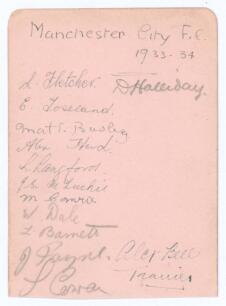 Manchester City F.C.
1933-34
L. Fletcher. D Halliday.
E. Toseland.
Matt. Busby
Alex Herd.
L. Langford.
J. McLuckie
W. Dale
L Barnett
J Payne. Alex Bell
S Cowan Trainer